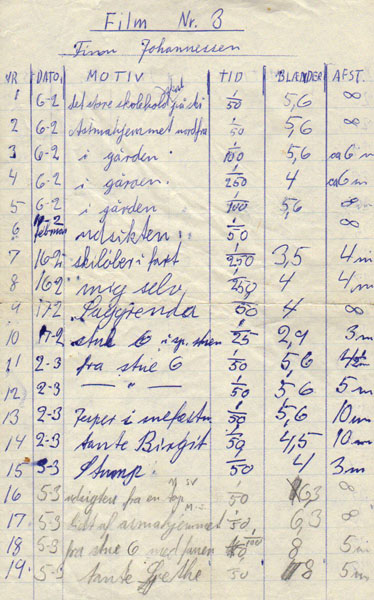 Film Nr. 3
Finn Johannessen
NR DATO MOTIV TID BLÆNDER AFST.
1 6-2 det store på ski 1/50 5,6 ∞
2 6-2 nordfra 1/50 5,6 ∞
3 6-2 i gården 1/100 5,6 ca 6 m
4 6-2 i gården 1/250 4 ca 6 m
5 6-2 i gården 1/100 5,6
6 februar udsikten 1/50 ∞
7 16-2 skiløber i fart 1/250 3,5 4 m
8 16-2 mig selv 1/250 4 4 m
9 17-2 1/50 4 ∞
10 17-2 stue 6 i 1/25 2,9 3 m
11 2-3 fra stue 6 1/50 5,6
12 2-3 — " — 1/50 5,6 5 m
13 2-3 i 1/50 5,6 10 m
14 2-3 tante Birgit 1/50 4,5 10 m
15 3-3 Stump 1/50 4 3 m
16 5-3 fra en 1/50 6,3 ∞
17 5-3 1/50 6,3 ∞
18 5-3 fra stue 6 med 1/100 8 5 m
19 5-3 tante Grethe 1/50 8 5 m